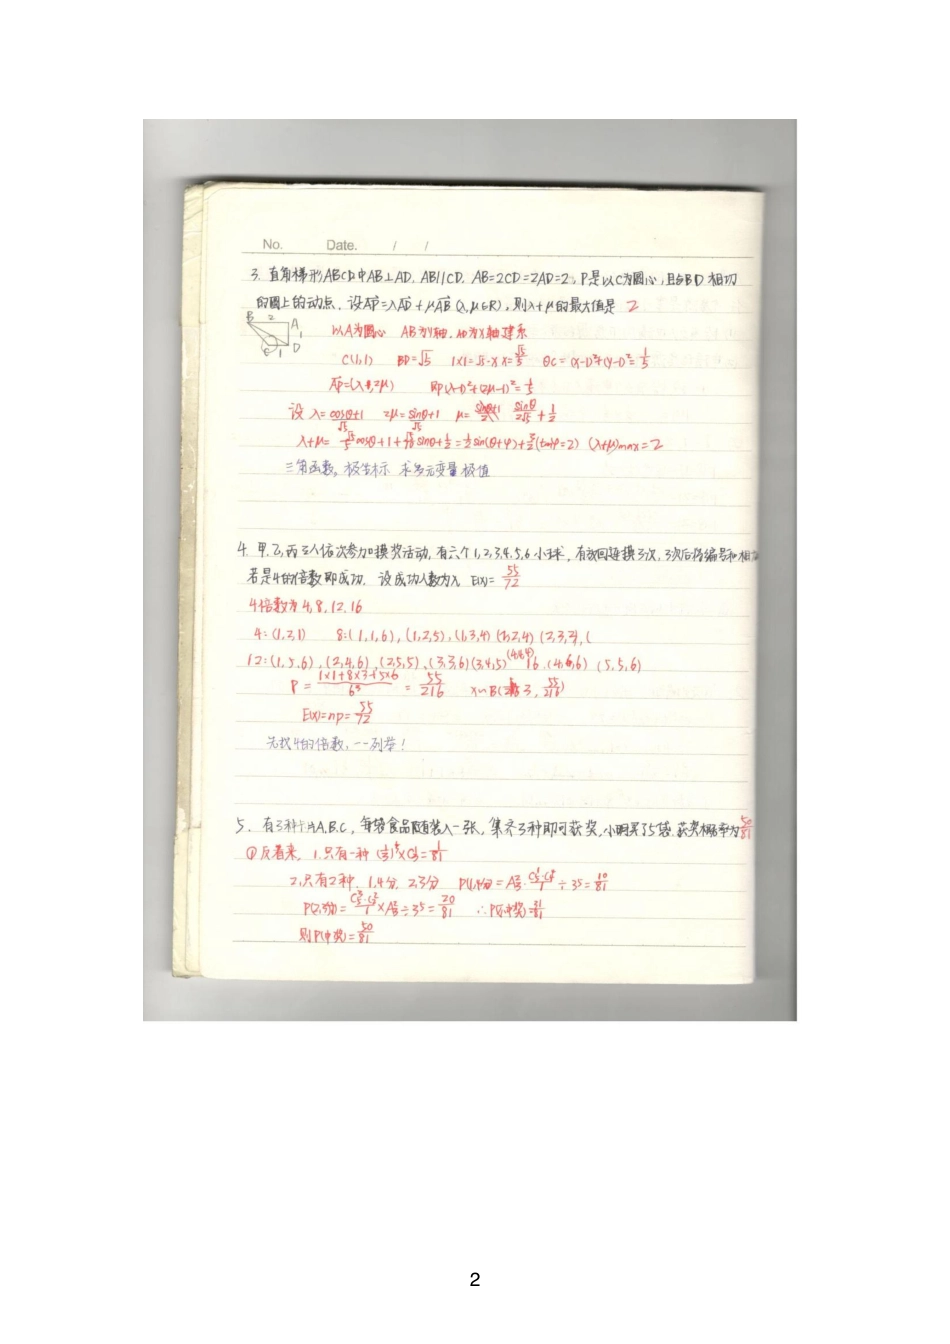 No. Date. / /
3. 直角梯形ABCD中AB⊥AD, AB//CD, AB=2CD=2AD=2, P是以C为圆心,且与BD相切
的圆上的动点. 设AP=λAD+μAB (λ,μ∈R), 则λ+μ的最大值是 2
B 2 A
1
C 1 D
以A为圆心 AB为Y轴. AD为X轴建系
C(1,1) BD=√5 1×1=√5·x x=√5/5 ⊙C=(x-1)²+(y-1)²=1/5
AP=(λ,2μ) 即(λ-1)²+(2μ-1)²=1/5
设 λ=cosθ/√5+1 2μ=sinθ/√5+1 μ= sinθ/2√5+1/2
λ+μ= √5/5cosθ+1+√5/10sinθ+1/2=1/2sin(θ+φ)+3/2(tanφ=2) (λ+μ)max=2
三角函数, 极坐标 求多元变量极值
4. 甲.乙,丙三人依次参加摸奖活动, 有六个1,2,3,4,5,6小球, 有放回连摸3次, 3次后将编号和相加
若是4的倍数即成功. 设成功人数为X E(X)= 55/72
4倍数有4,8,12,16
4=(1,2,1) 8=(1,1,6),(1,2,5),(1,3,4)(2,2,4)(2,3,3),(
12:(1,5,6),(2,4,6),(2,5,5),(3,3,6)(3,4,5)(4,4,4) 16.(4,6,6) (5,5,6)
P= 1×1+8×3+5×6/6³ = 55/216 X~B(3, 55/216)
E(X)=np=55/72
先找4的倍数, 一一列举!
5. 有3种卡片A,B,C, 每袋食品随机装入一张, 集齐3种即可获奖, 小明买了5袋. 获奖概率为50/81
①反着来, 1.只有一种 (1/3)⁵×C₃¹=1/81
2.只有2种 1.4分 2.3分 P(1,4分)= A₃²·C₅¹·C₄⁴/1÷3⁵=10/81
P(2,3分)= C₅³·C₂²/1×A₃²÷3⁵=20/81 ∴P(不中奖)=31/81
则P(中奖)=50/81
2